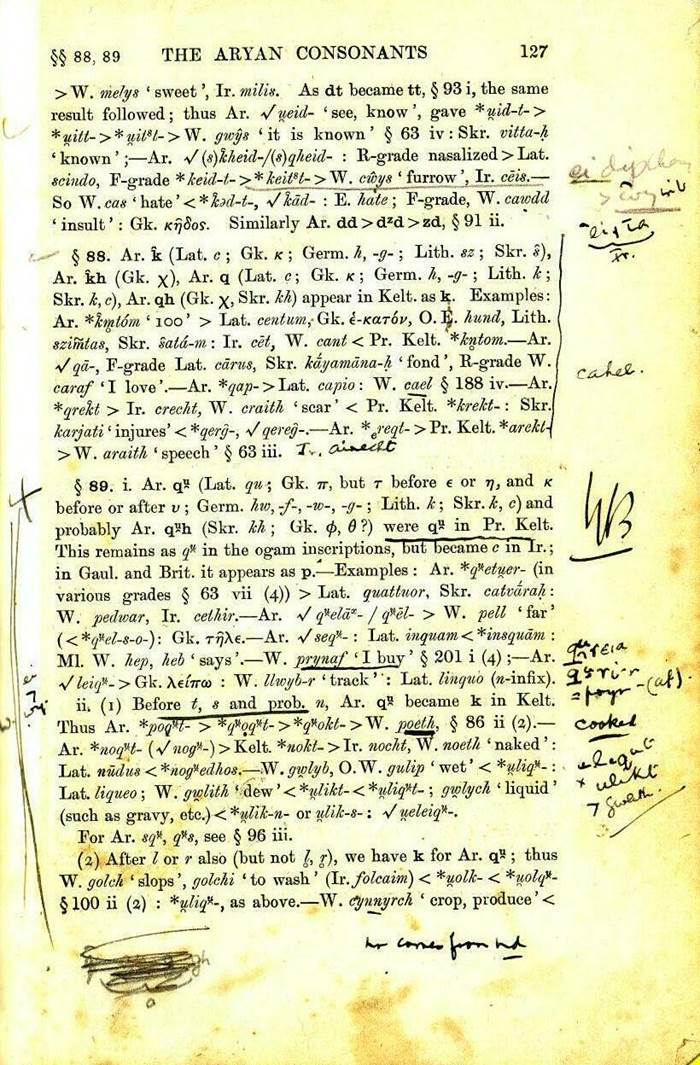 §§ 88, 89 THE ARYAN CONSONANTS 127
> W. melys ‘ sweet ’, Ir. milis. As dt became tt, § 93 i, the same
result followed ; thus Ar. √u̯eid- ‘ see, know ’, gave *u̯id-t- >
*u̯itt- > *u̯itˢt- > W. gwŷs ‘ it is known ’ § 63 iv : Skr. vitta-ḥ
‘ known ’ ;—Ar. √(s)k̂heid-/(s)qheid- : R-grade nasalized > Lat.
scindo, F-grade *keid-t- > *keitˢt- > W. cŵys ‘ furrow ’, Ir. cēis.—
So W. cas ‘ hate ’ < *k̂əd-t-, √k̂ād- : E. hate ; F-grade, W. cawdd
‘ insult ’ : Gk. κῆδος. Similarly Ar. dd > dᶻd > zd, § 91 ii.
§ 88. Ar. k̂ (Lat. c ; Gk. κ ; Germ. h, -g- ; Lith. sz ; Skr. ś),
Ar. k̂h (Gk. χ), Ar. q (Lat. c ; Gk. κ ; Germ. h, -g- ; Lith. k ;
Skr. k, c), Ar. qh (Gk. χ, Skr. kh) appear in Kelt. as k. Examples :
Ar. *k̂m̥tóm ‘ 100 ’ > Lat. centum, Gk. ἑ-κατόν, O. E. hund, Lith.
szim̃tas, Skr. śatá-m : Ir. cēt, W. cant < Pr. Kelt. *kn̥tom.—Ar.
√qā-, F-grade Lat. cārus, Skr. kā́yamāna-ḥ ‘ fond ’, R-grade W.
caraf ‘ I love ’.—Ar. *qap- > Lat. capio : W. cael § 188 iv.—Ar. cahel.
*qrek̂t > Ir. crecht, W. craith ‘ scar ’ < Pr. Kelt. *krekt- : Skr.
karjati ‘ injures ’ < *qerĝ-, √qereĝ-.—Ar. *ₑreqt- > Pr. Kelt. *arekt-
> W. araith ‘ speech ’ § 63 iii. Ir. airecht
§ 89. i. Ar. qᵘ̯ (Lat. qu ; Gk. π, but τ before ε or η, and κ
before or after υ ; Germ. hw, -f-, -w-, -g- ; Lith. k ; Skr. k, c) and
probably Ar. qᵘ̯h (Skr. kh ; Gk. φ, θ ?) were qᵘ̯ in Pr. Kelt.
This remains as qᵘ̯ in the ogam inscriptions, but became c in Ir. ;
in Gaul. and Brit. it appears as p.—Examples : Ar. *qᵘ̯etu̯er- (in
various grades § 63 vii (4)) > Lat. quattuor, Skr. catvā́raḥ :
W. pedwar, Ir. cethir.—Ar. √qᵘ̯elāˣ- / qᵘ̯ēl- > W. pell ‘ far ’
(< *qᵘ̯el-s-o-) : Gk. τῆλε.—Ar. √seqᵘ̯- : Lat. inquam < *insquām :
Ml. W. hep, heb ‘ says ’.—W. prynaf ‘ I buy ’ § 201 i (4) ;—Ar.
√leiqᵘ̯- > Gk. λείπω : W. llwybr-r ‘ track ’ : Lat. linquo (n-infix).
ii. (1) Before t, s and prob. n, Ar. qᵘ̯ became k in Kelt.
Thus Ar. *poqᵘ̯t- > *qᵘ̯oqᵘ̯t- > *qᵘ̯okt- > W. poeth, § 86 ii (2).— cooked
Ar. *noqᵘ̯t- (√nogᵘ̯-) > Kelt. *nokt- > Ir. nocht, W. noeth ‘ naked ’ :
Lat. nūdus < *nogᵘ̯edhos.—W. gwlyb, O.W. gulip ‘ wet ’ < *u̯liqᵘ̯- :
Lat. liqueo ; W. gwlith ‘ dew ’ < *u̯likt- < *u̯liqᵘ̯t- ; gwlych ‘ liquid ’
(such as gravy, etc.) < *u̯lik-n- or u̯lik-s- : √u̯eleiqᵘ̯-.
For Ar. sqᵘ̯, qᵘ̯s, see § 96 iii.
(2) After l or r also (but not l̥, r̥), we have k for Ar. qᵘ̯ ; thus
W. golch ‘ slops ’, golchi ‘ to wash ’ (Ir. folcaim) < *u̯olk- < *u̯olqᵘ̯-
§ 100 ii (2) : *u̯liqᵘ̯-, as above.—W. cynnyrch ‘ crop, produce ’ <
comes from